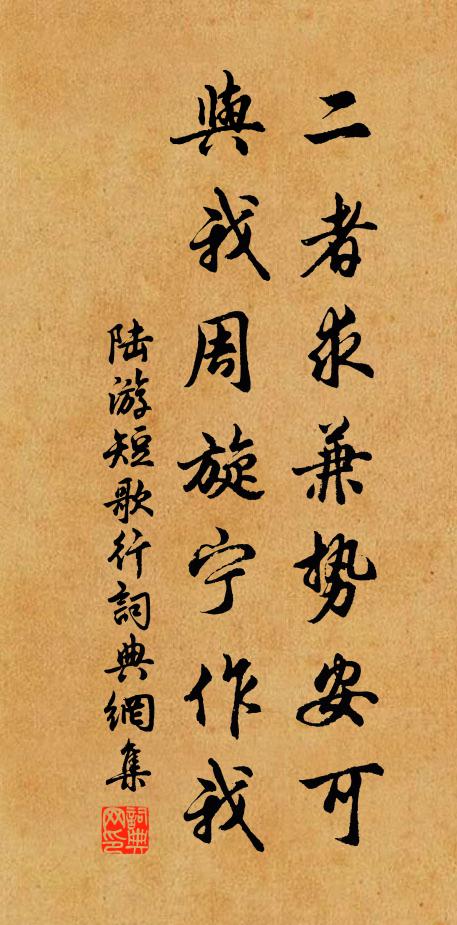 二者求兼势安可
與我周旋宁作我
陆游短歌行詞典網集
詞典网印